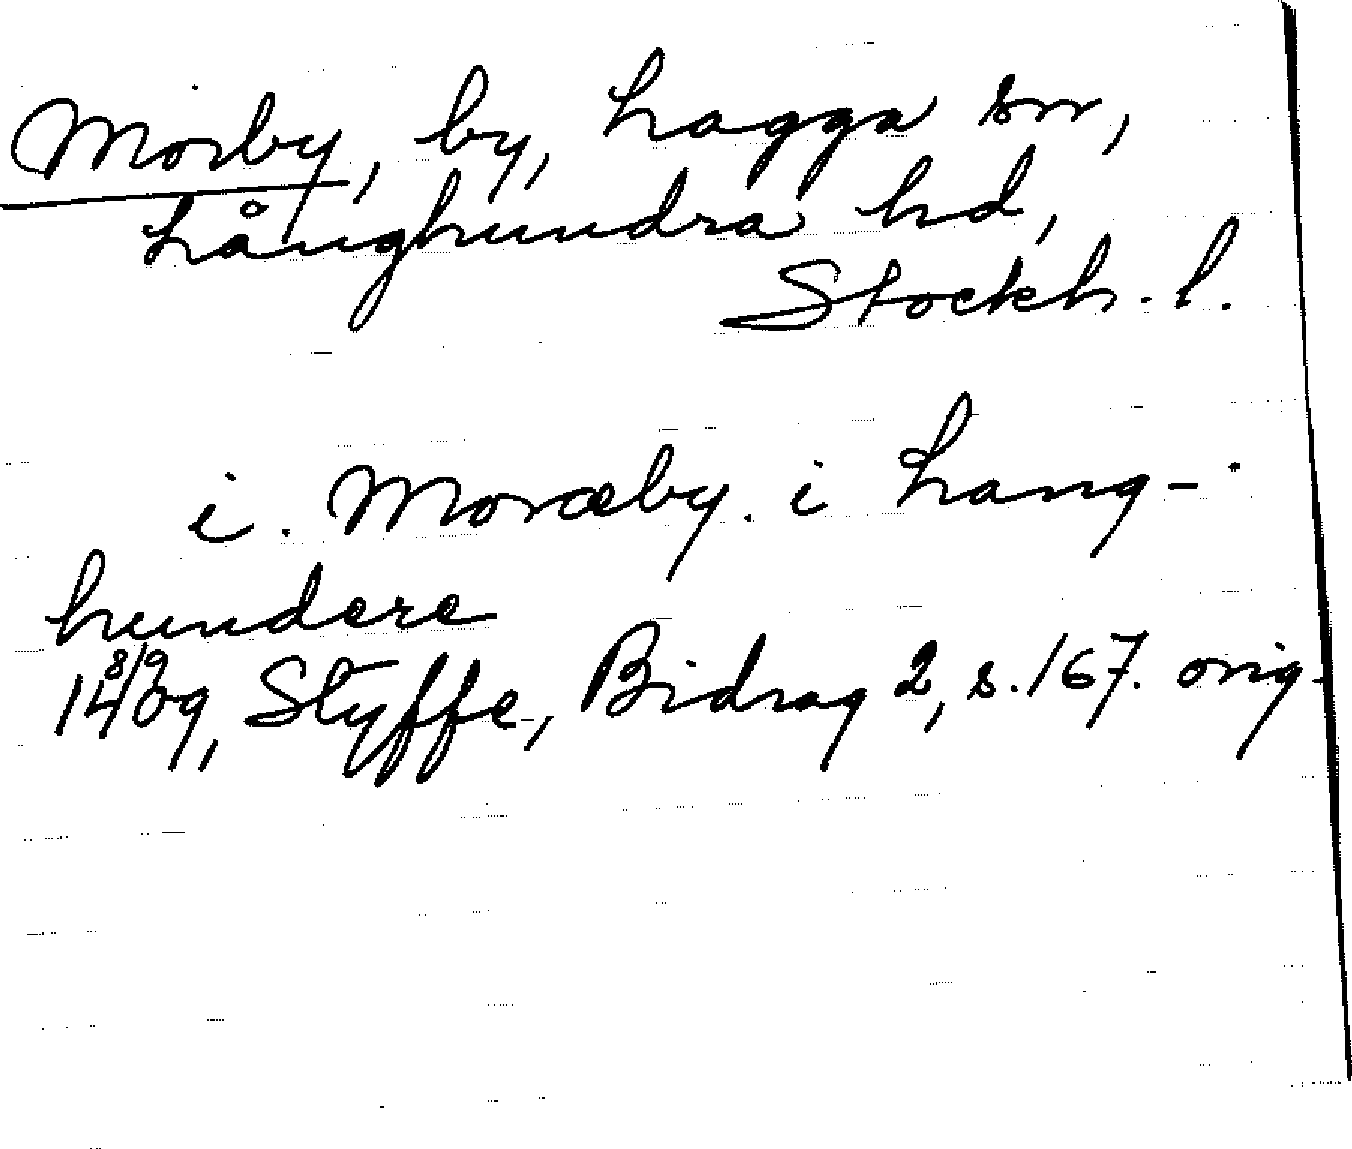 Morby, by, Lagga sn,
Långhundra hd,
Stockh. l.
i. Moræby. i Lang-
hundere
14 8/9 09, Styffe, Bidrag 2, s. 167. orig.